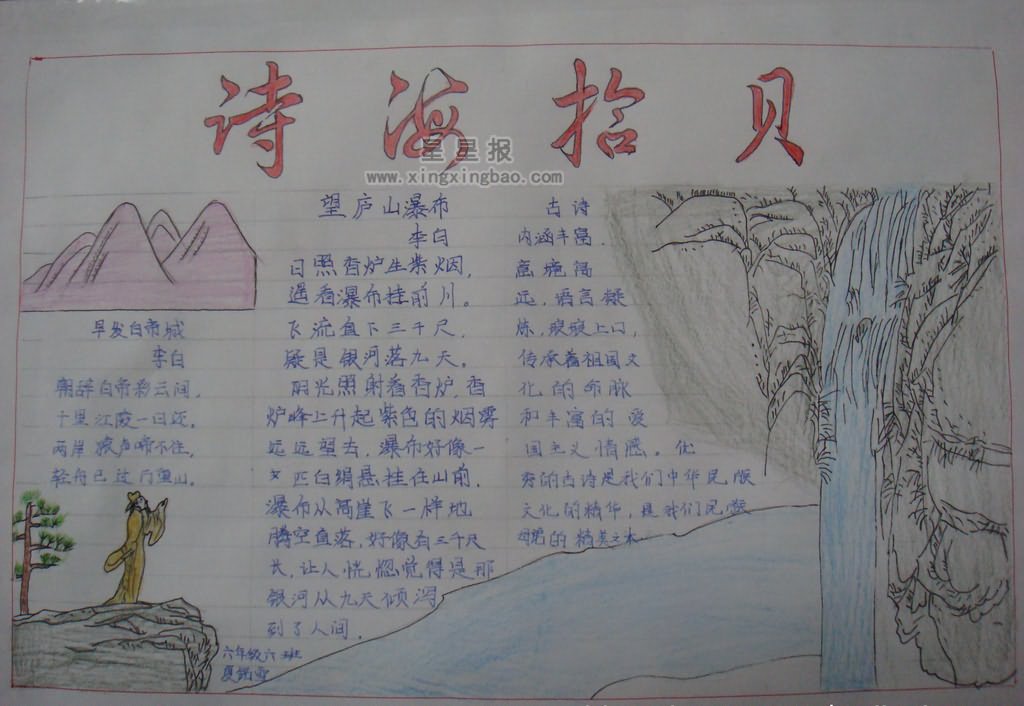 诗海拾贝
星星报
www.xingxingbao.com
早发白帝城
李白
朝辞白帝彩云间，
千里江陵一日还。
两岸猿声啼不住，
轻舟已过万重山。
望庐山瀑布
李白
日照香炉生紫烟，
遥看瀑布挂前川。
飞流直下三千尺，
疑是银河落九天。
阳光照射着香炉，香
炉峰上升起紫色的烟雾
远远望去，瀑布好像一
匹白绢悬挂在山前，
瀑布从高崖飞一样地
腾空直落，好像有三千尺
长，让人恍惚觉得是那
银河从九天倾泻
到了人间。
古诗
内涵丰富，
意境阔
远，语言凝
炼，琅琅上口，
传承着祖国文
化的命脉
和丰富的爱
国主义情感。优
秀的古诗是我们中华民族
文化的精华，是我们民族
的精美之本
六年级六班